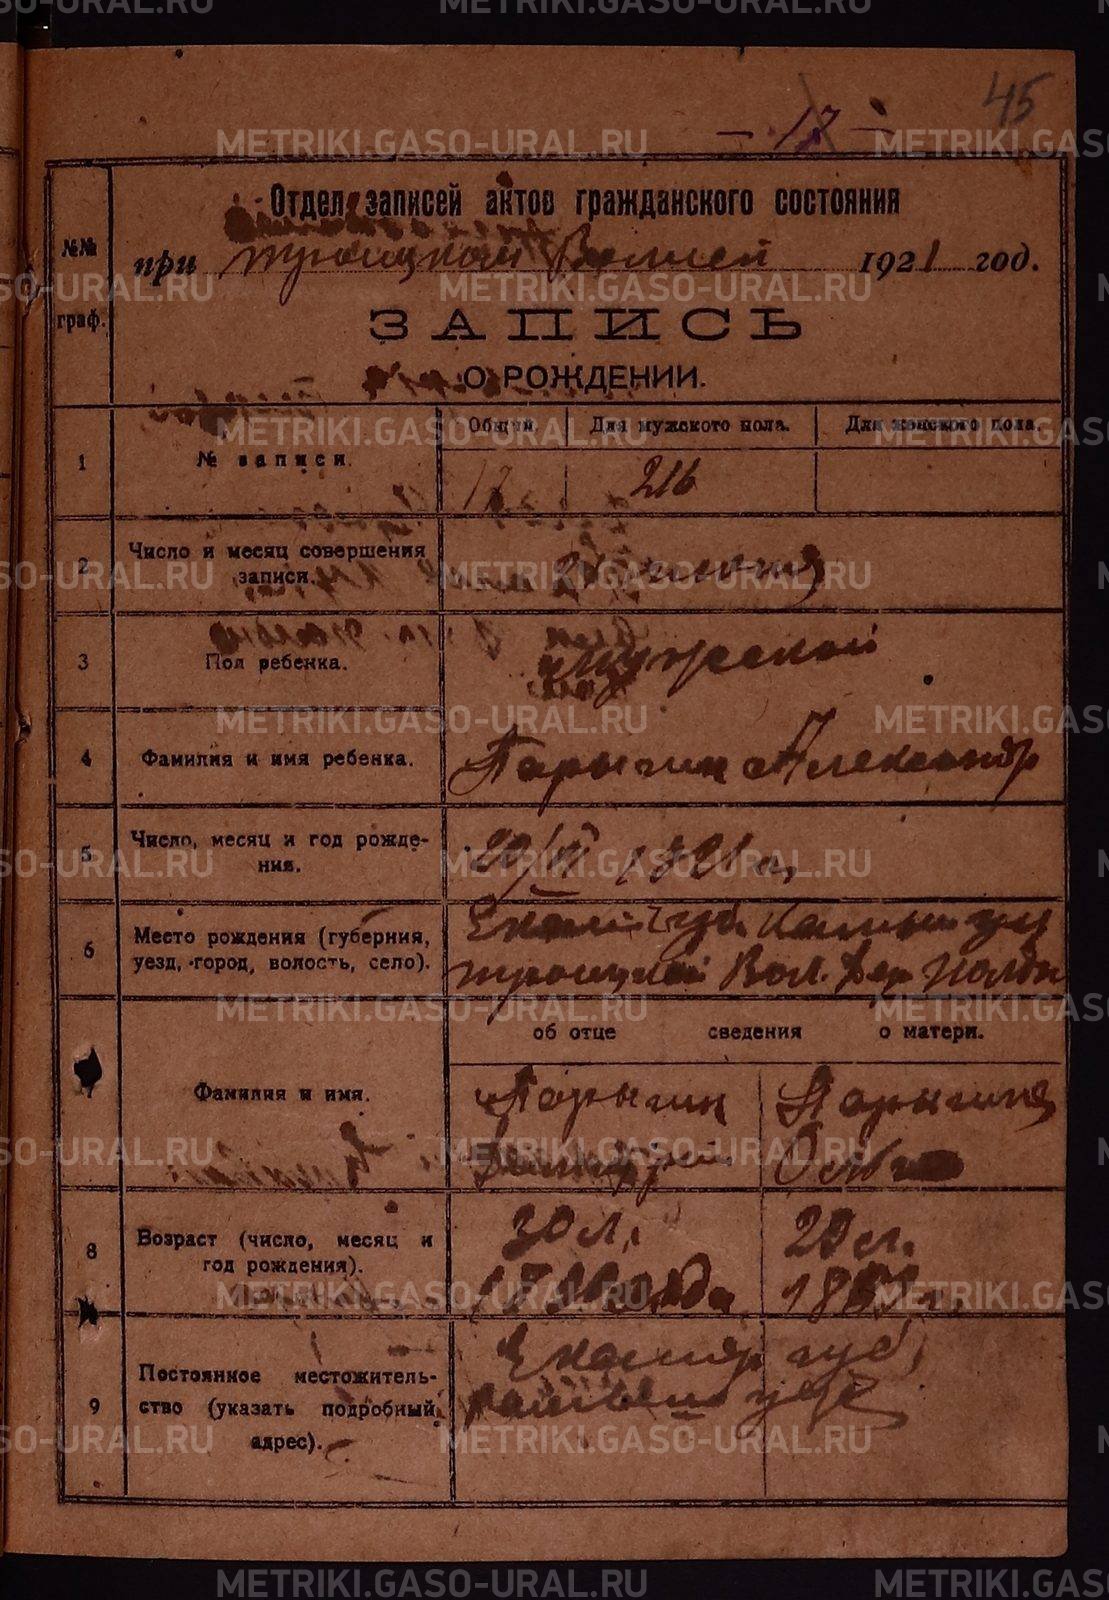 45
- 17 -
Отдел записей актов гражданского состояния
№№ граф.
при Троицкой Волисп 1921 год.
ЗАПИСЬ
О РОЖДЕНИИ.
Общий. Для мужского пола. Для женского пола.
1 № записи. 17 216
2 Число и месяц совершения
записи. июня
3 Пол ребенка. мужской
4 Фамилия и имя ребенка. Парыгин Александр
5 Число, месяц и год рожде-
ния. 20/VI 1921 г.
6 Место рождения (губерния, Екат губ. Камыш уез
уезд, город, волость, село). Троицкой Вол. дер
об отце сведения о матери.
7 Фамилия и имя. Парыгин Парыгина
Дмитрий Ольга
8 Возраст (число, месяц и 30 л. 29 л.
год рождения). года 18 г.
9 Постоянное местожитель- Екатер губ,
ство (указать подробный Камыш уез
адрес).
METRIKI.GASO-URAL.RU